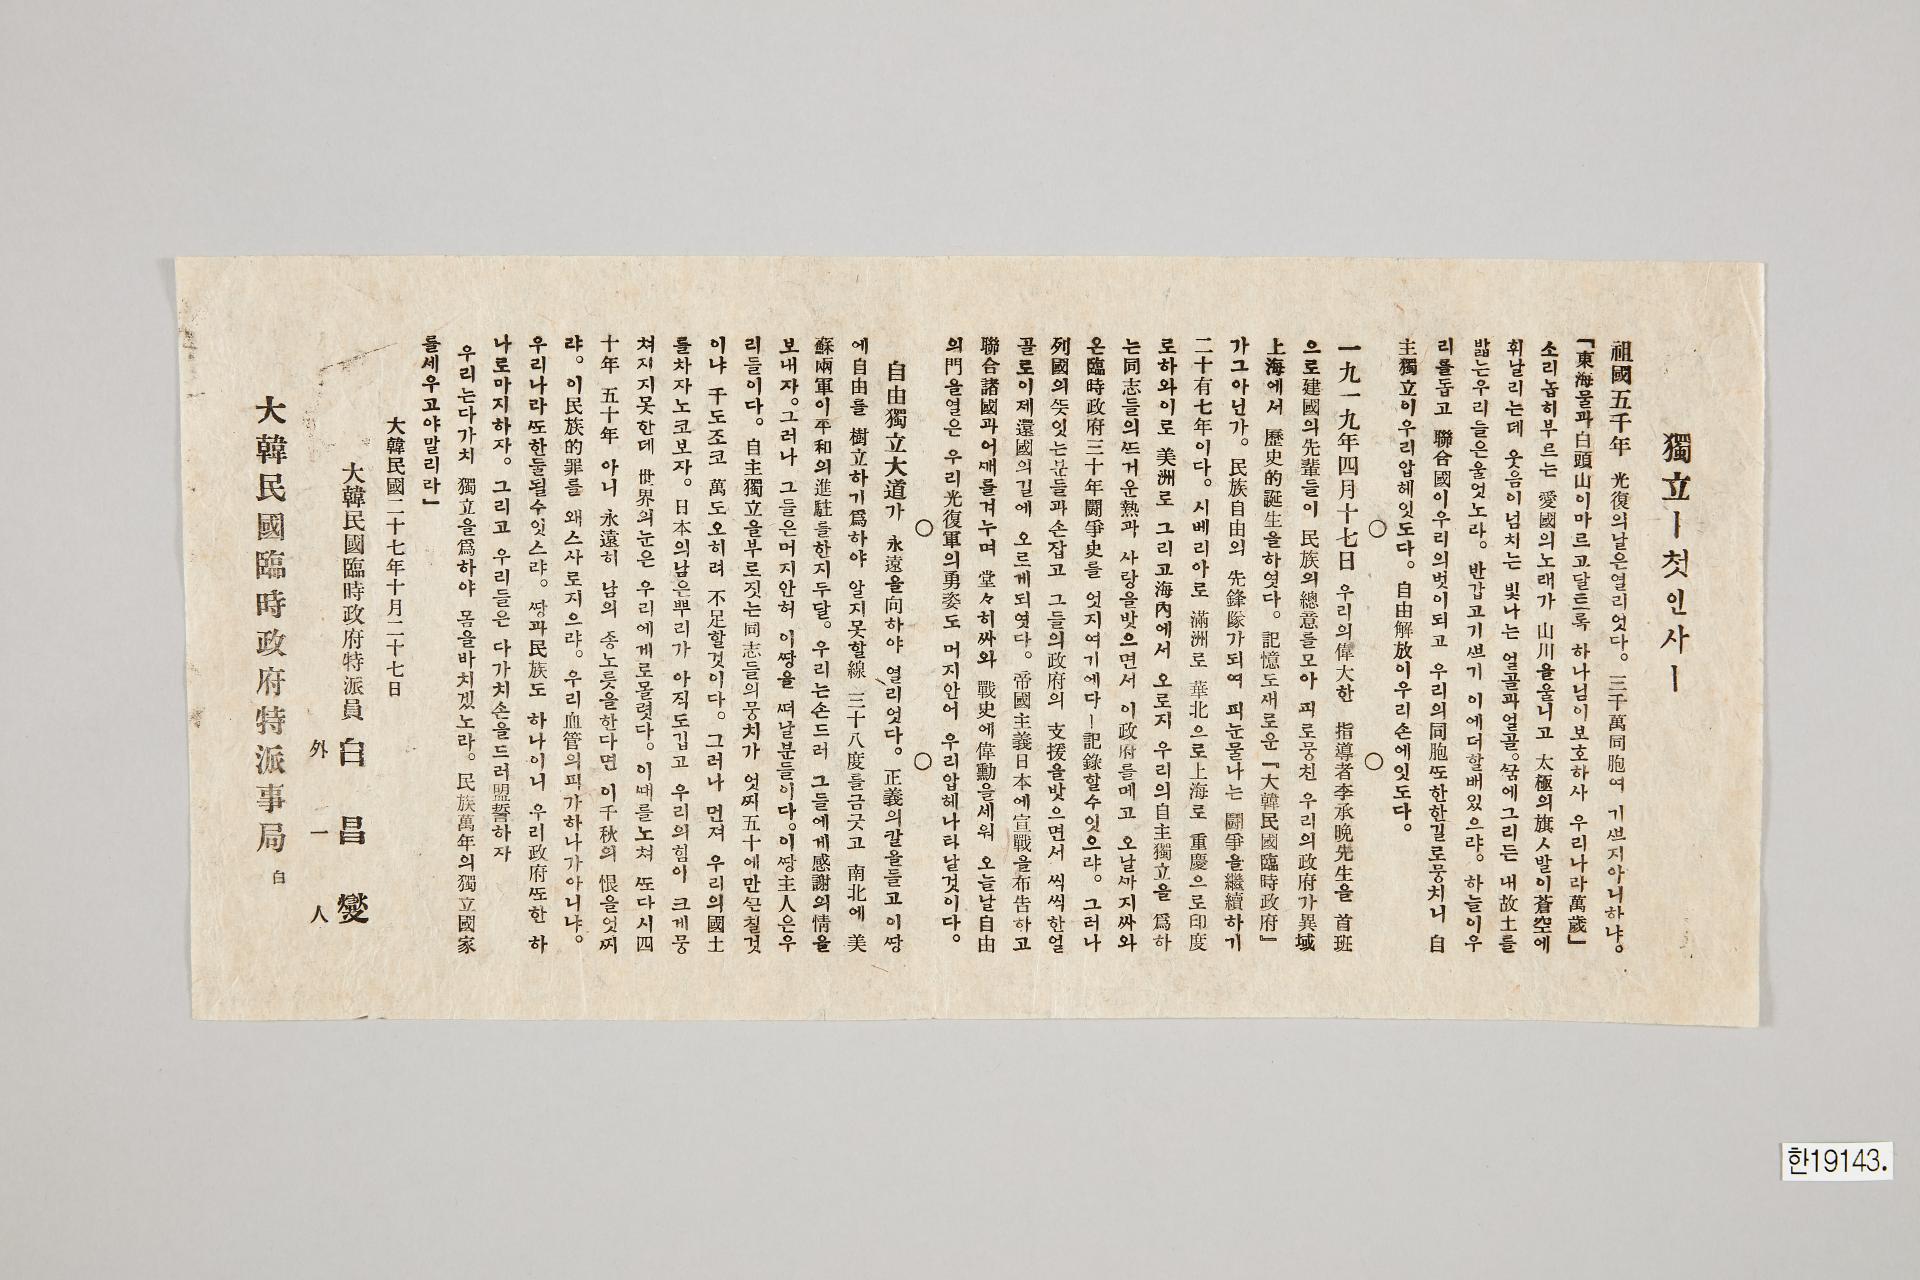 獨立ー첫인사ー
祖國五千年 光復의날은열리엇다。三千萬同胞여 기쁘지아니하냐。
「東海물과白頭山이마르고달트록 하나님이보호하사 우리나라萬歲」
소리놉히부르는 愛國의노래가 山川을울니고 太極의旗人발이蒼空에
휘날리는데 웃음이넘치는 빛나는 얼골과얼골。꿈에그리든 내故土를
밟는우리들은울엇노라。반갑고기쁘기 이에더할배있으랴。하늘이우
리를돕고 聯合國이우리의벗이되고 우리의同胞또한한길로뭉치니 自
主獨立이우리압헤잇도다。自由解放이우리손에잇도다。
○ ○
一九一九年四月十七日 우리의偉大한 指導者李承晩先生을 首班
으로建國의先輩들이 民族의總意를모아 피로뭉친 우리의政府가異域
上海에서 歷史的誕生을하엿다。記憶도새로운『大韓民國臨時政府』
가그아닌가。民族自由의 先鋒隊가되여 피눈물나는 鬪爭을繼續하기
二十有七年이다。시베리아로 滿洲로 華北으로上海로 重慶으로印度
로하와이로 美洲로 그리고海內에서 오로지 우리의自主獨立을 爲하
는同志들의뜨거운熱과 사랑을밧으면서 이政府를메고 오날까지싸와
온臨時政府三十年鬪爭史를 엇지여기에다ー記錄할수잇으랴。그러나
列國의뜻잇는분들과손잡고 그들의政府의 支援을밧으면서 씩씩한얼
골로이제還國의길에 오르게되엿다。帝國主義日本에宣戰을布告하고
聯合諸國과어깨를겨누며 堂々히싸와 戰史에偉勳을세워 오늘날自由
의門을열은 우리光復軍의勇姿도 머지안어 우리압헤나타날것이다。
○ ○
自由獨立大道가 永遠을向하야 열리엇다。正義의칼을들고이땅
에自由를 樹立하기爲하야 알지못할線 三十八度를금긋고 南北에 美
蘇兩軍이平和의進駐를한지두달。우리는손드러 그들에게感謝의情을
보내자。그러나 그들은머지안허 이땅을 떠날분들이다。이땅主人은우
리들이다。自主獨立을부로짓는同志들의뭉치가 엇찌五十에만끈칠것
이냐 千도조코 萬도오히려 不足할것이다。그러나 먼저 우리의國土
를차자노코보자。日本의남은뿌리가 아직도깁고 우리의힘이 크게뭉
쳐지지못한데 世界의눈은 우리에게로몰렷다。이때를노쳐 또다시四
十年 五十年 아니 永遠히 남의 종노릇을한다면 이千秋의 恨을엇찌
랴。이民族的罪를 왜스사로지으랴。우리血管의피가하나가아니냐。
우리나라또한둘될수잇스랴。땅과民族도 하나이니 우리政府또한 하
나로마지하자。그리고 우리들은 다가치손을드러盟誓하자
우리는다가치 獨立을爲하야 몸을바치겠노라。民族萬年의獨立國家
를세우고야말리라」
大韓民國二十七年十月二十七日
大韓民國臨時政府特派員 白昌燮
外一人
大韓民國臨時政府特派事局 白
한19143.